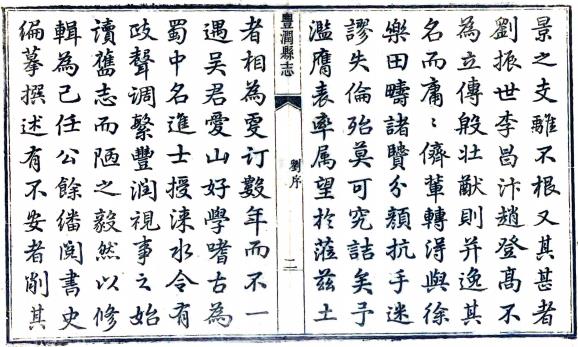 景之支離不根又其甚者
劉振世李昌汴趙登髙不
為立傳般壯猷則并逸其
名而庸〻儕輩轉得與徐
樂田疇諸贒分顔抗手迷
謬失倫殆莫可究詰矣予
濫膺表率属望於蒞茲土
豐潤縣志
劉序
二
者相為更订數年而不一
遇吴君愛山好學嗜古為
蜀中名進士授涞水令有
政聲调繁豐润視事之始
讀舊志而陋之毅然以修
輯為己任公餘繙閲書史
編摹撰述有不安者削其